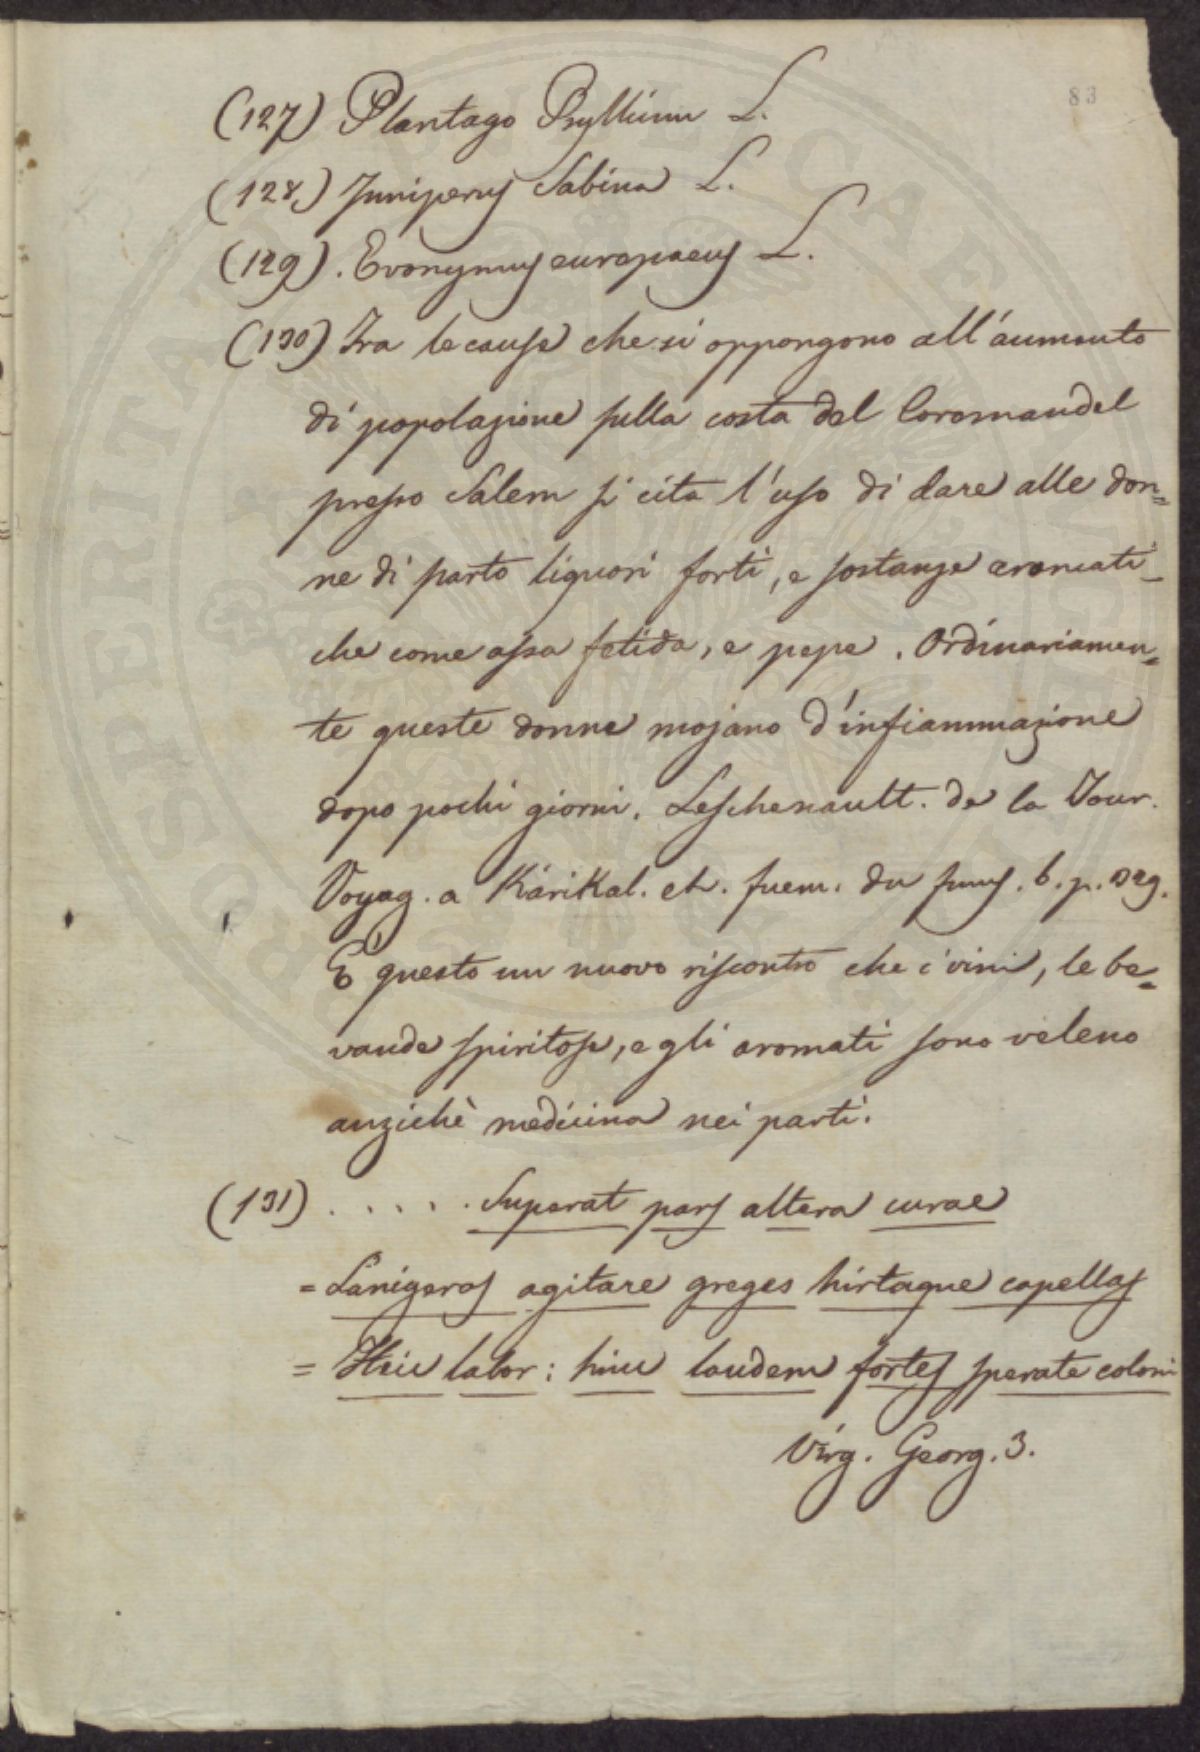 83
(127) Plantago Psyllium L.
(128) Juniperus Sabina L.
(129). Evonymus europaeus L.
(130) Tra le cause che si oppongono all'aumento
di popolazione sulla costa del Coromandel
presso Salem si cita l'uso di dare alle don=
ne di parto liquori forti, e sostanze aromati-
che come assa fetida, e pepe. Ordinariamen=
te queste donne mojano d'infiammazione
dopo pochi giorni. Leschenault. de la Tour.
Voyag. a Kárikal. du 6. p.
È questo un nuovo riscontro che i vini, le be=
vande spiritose, e gli aromati sono veleno
anzichè medicina nei parti.
(131) ..... Superat pars altera curae
= Lanigeros agitare greges hirtaque capellas
= Hic labor: hinc laudem fortes sperate coloni
Virg. Georg. 3.
PROSPERITATI PUBLICAE AUGENDAE